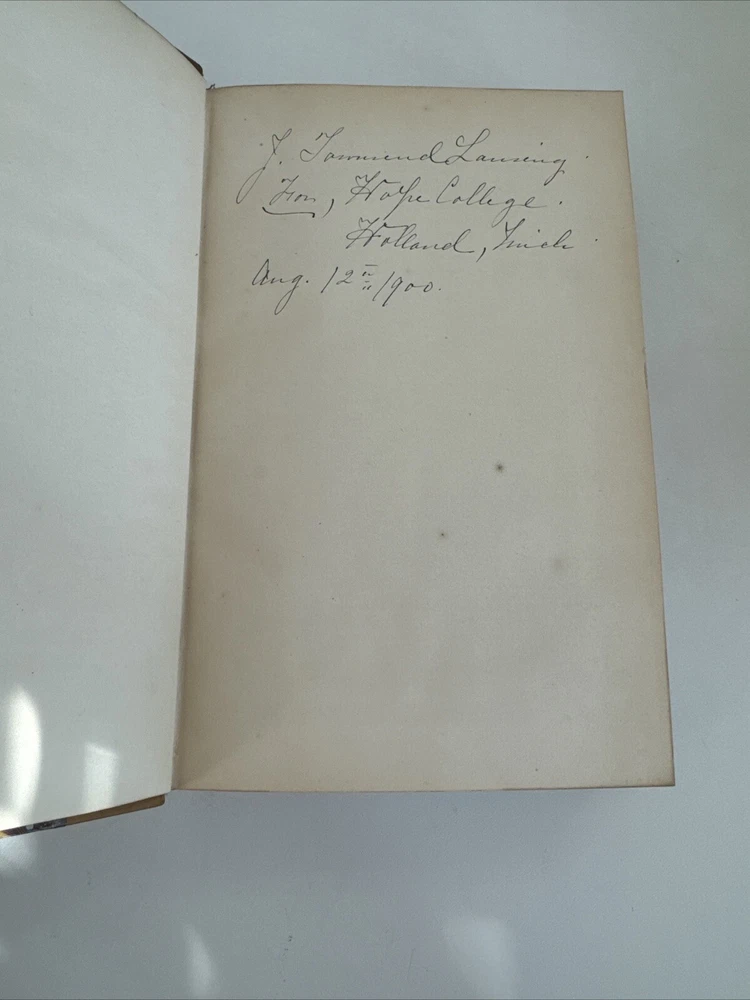 J. Townsend Lansing.
Hope College.
Holland, Mich.
Aug. 12 1900.